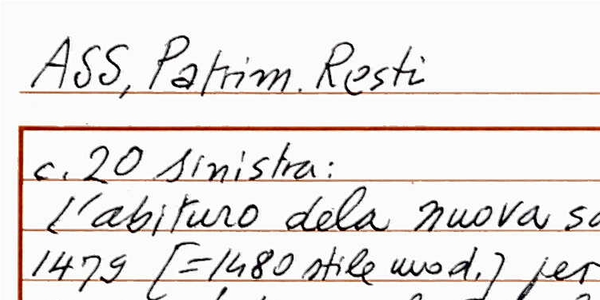 ASS, Patrim. Resti
c. 20 sinistra:
L'abituro dela nuova
1479 [=1480 stile mod.] per